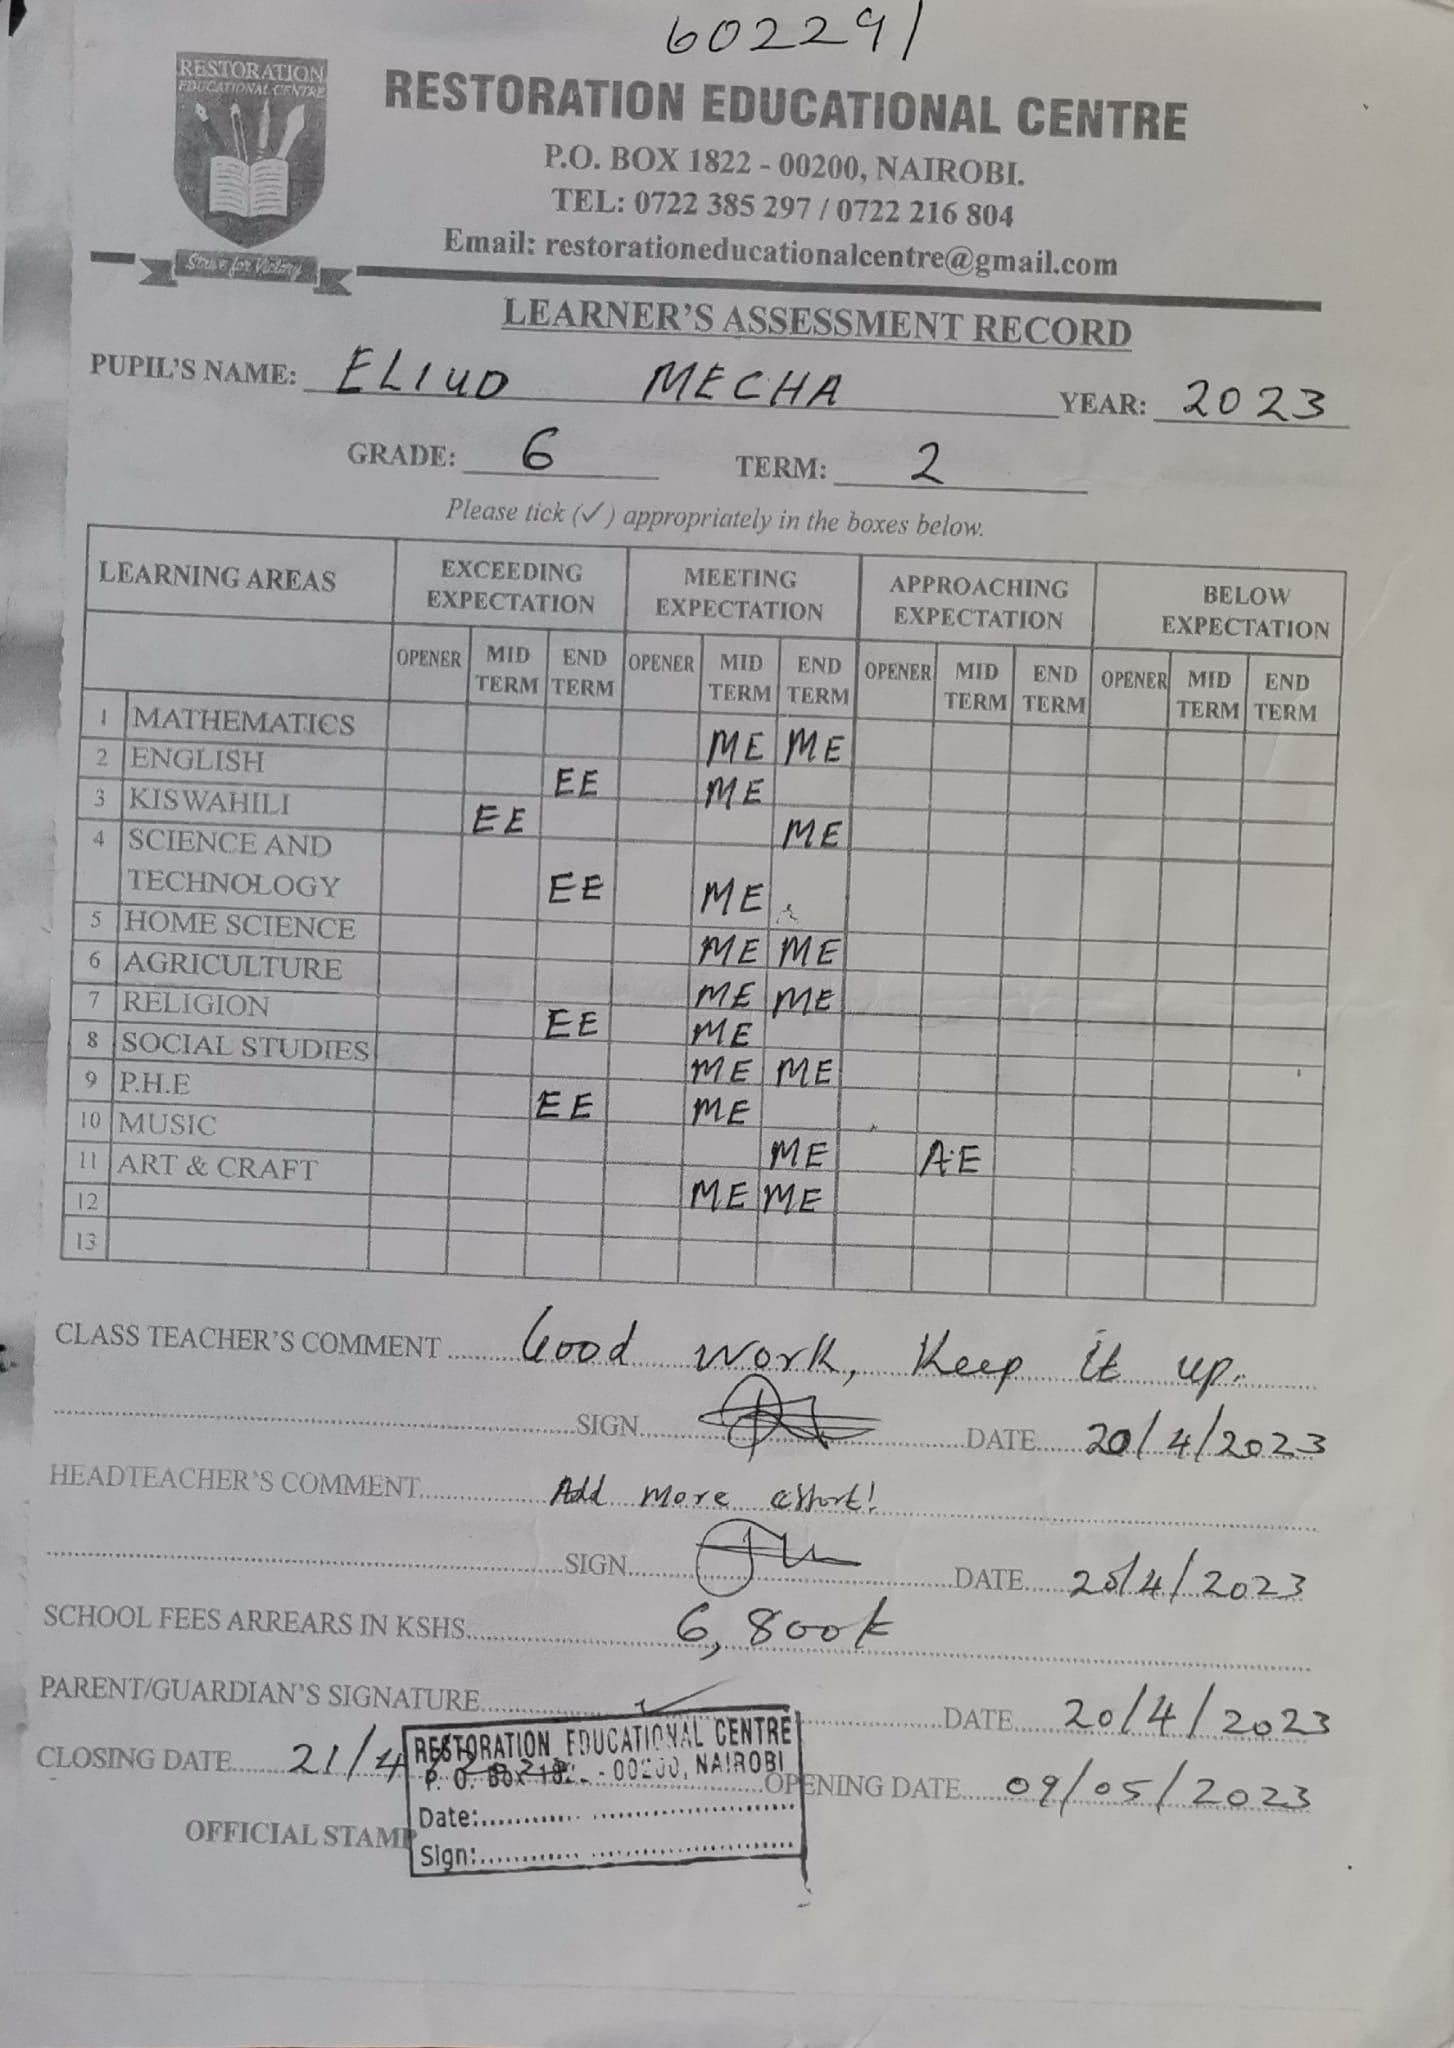 602291
RESTORATION
EDUCATIONAL CENTRE
Strive for Victory
RESTORATION EDUCATIONAL CENTRE
P.O. BOX 1822 - 00200, NAIROBI.
TEL: 0722 385 297 / 0722 216 804
Email: restorationeducationalcentre@gmail.com
LEARNER'S ASSESSMENT RECORD
PUPIL'S NAME: ELIUD MECHA YEAR: 2023
GRADE: 6 TERM: 2
Please tick (✓) appropriately in the boxes below.
LEARNING AREAS EXCEEDING EXPECTATION MEETING EXPECTATION APPROACHING EXPECTATION BELOW EXPECTATION
OPENER MID TERM END TERM OPENER MID TERM END TERM OPENER MID TERM END TERM OPENER MID TERM END TERM
1 MATHEMATICS ME ME
2 ENGLISH EE ME
3 KISWAHILI EE ME
4 SCIENCE AND
TECHNOLOGY EE ME
5 HOME SCIENCE ME ME
6 AGRICULTURE ME ME
7 RELIGION EE ME
8 SOCIAL STUDIES ME ME
9 P.H.E EE ME
10 MUSIC ME AE
11 ART & CRAFT ME ME
12
13
CLASS TEACHER'S COMMENT Good work, Keep it up.
SIGN DATE 20/4/2023
HEADTEACHER'S COMMENT Add more effort!
SIGN DATE 20/4/2023
SCHOOL FEES ARREARS IN KSHS 6,800/=
PARENT/GUARDIAN'S SIGNATURE DATE 20/4/2023
CLOSING DATE 21/4 OPENING DATE 09/05/2023
OFFICIAL STAMP
RESTORATION EDUCATIONAL CENTRE
P. O. Box - 00200, NAIROBI
Date:
Sign: